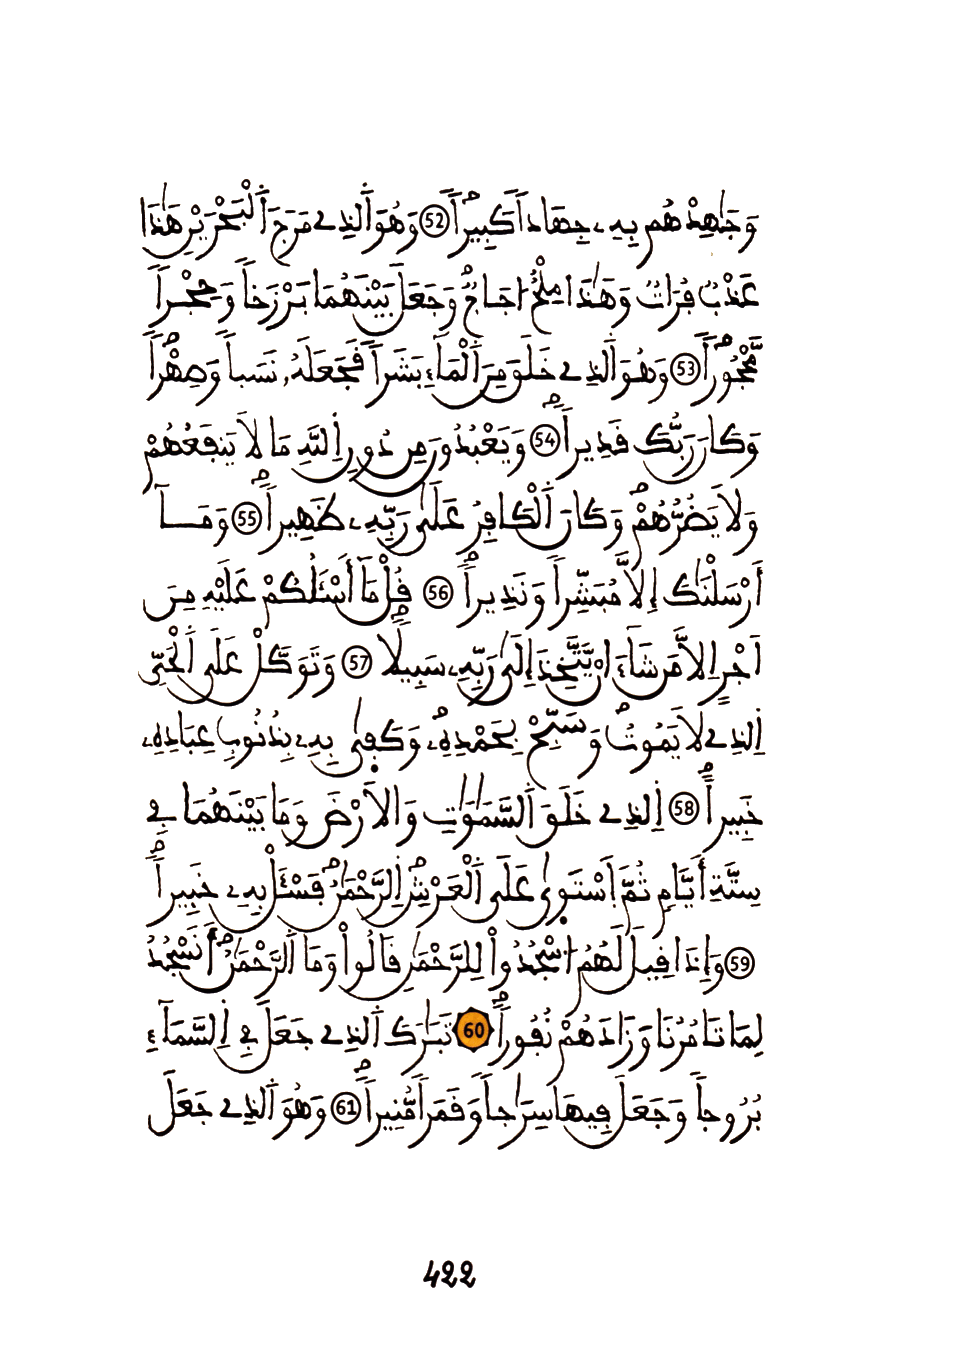 وَجَٰهِدْهُم بِهِۦ جِهَاداٗ كَبِيراٗۖ 52 وَهُوَ اَ۬لذِے مَرَجَ اَ۬لْبَحْرَيْنِ هَٰذَا
عَذْبٞ فُرَاتٞ وَهَٰذَا مِلْحٌ ا۟جَاجٞۖ وَجَعَلَ بَيْنَهُمَا بَرْزَخاٗ وَحِجْراٗ
مَّحْجُوراٗۖ 53 وَهُوَ اَ۬لذِے خَلَقَ مِنَ اَ۬لْمَآءِ بَشَراٗ فَجَعَلَهُۥ نَسَباٗ وَصِهْراٗۖ
وَكَانَ رَبُّكَ قَدِيراٗۖ 54 وَيَعْبُدُونَ مِن دُونِ اِ۬للَّهِ مَا لَا يَنفَعُهُمْ
وَلَا يَضُرُّهُمْۖ وَكَانَ اَ۬لْكَافِرُ عَلَىٰ رَبِّهِۦ ظَهِيراٗۖ 55 وَمَآ
أَرْسَلْنَٰكَ إِلَّا مُبَشِّراٗ وَنَذِيراٗۖ 56 قُلْ مَآ أَسْـَٔلُكُمْ عَلَيْهِ مِنَ
اَجْرٍ اِلَّا مَن شَآءَ انْ يَّتَّخِذَ إِلَىٰ رَبِّهِۦ سَبِيلاٗۖ 57 وَتَوَكَّلْ عَلَى اَ۬لْحَيِّ
اِ۬لذِے لَا يَمُوتُۖ وَسَبِّحْ بِحَمْدِهِۦۖ وَكَفَىٰ بِهِۦ بِذُنُوبِ عِبَادِهِۦ
خَبِيراٗۖ 58 اِ۬لذِے خَلَقَ اَ۬لسَّمَٰوَٰتِ وَالَارْضَ وَمَا بَيْنَهُمَا فِے
سِتَّةِ أَيَّامٖ ثُمَّ اَ۪سْتَوَىٰ عَلَى اَ۬لْعَرْشِۖ اِ۬لرَّحْمَٰنُۖ فَسْـَٔلْ بِهِۦ خَبِيراٗۖ
59 وَإِذَا قِيلَ لَهُمُ ا۟سْجُدُواْ لِلرَّحْمَٰنِ قَالُواْ وَمَا اَ۬لرَّحْمَٰنُۖ أَنَسْجُدُ
لِمَا تَامُرُنَا وَزَادَهُمْ نُفُوراٗۖ 60 تَبَٰرَكَ اَ۬لذِے جَعَلَ فِے اِ۬لسَّمَآءِ
بُرُوجاٗ وَجَعَلَ فِيهَا سِرَٰجاٗ وَقَمَراٗ مُّنِيراٗۖ 61 وَهُوَ اَ۬لذِے جَعَلَ
422